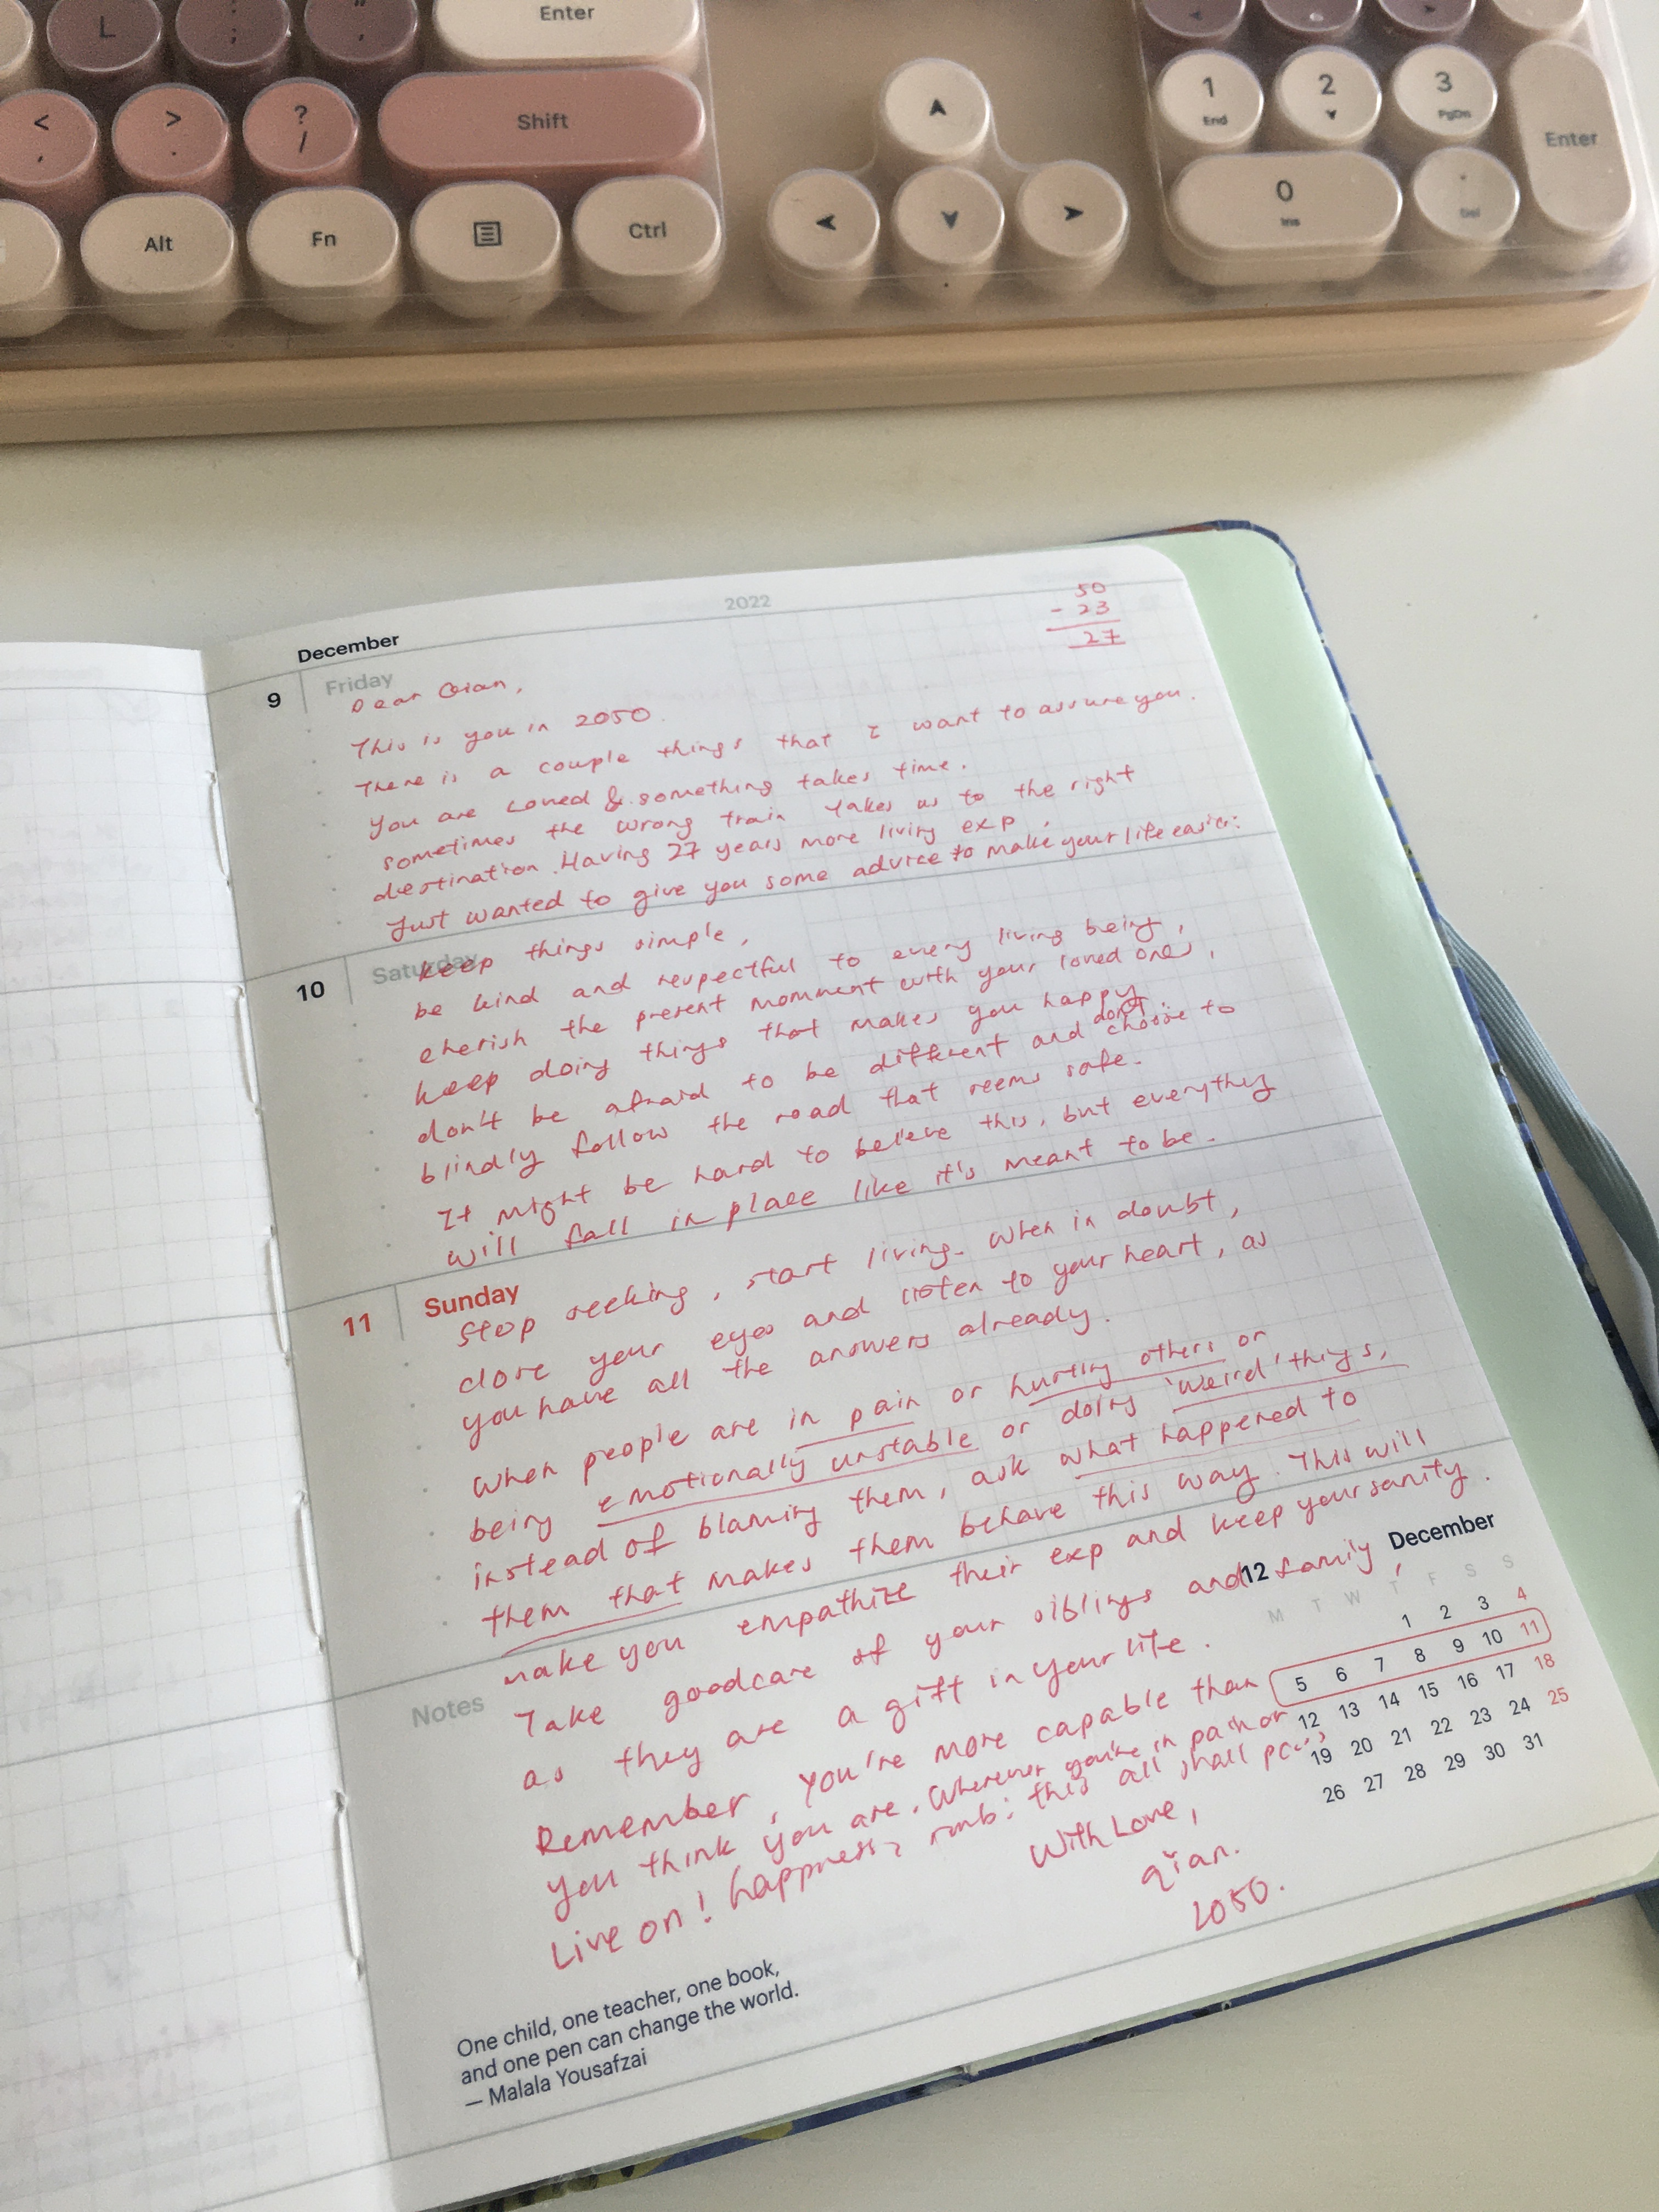 L
:
;
"
'
Enter
<
,
>
.
?
/
Shift
Alt
Fn
Ctrl
1
End
2
3
PgDn
Enter
0
Ins
.
Del
2022
50
- 23
27
December
9
Friday
Dear Qian,
This is you in 2050.
There is a couple things that I want to assure you.
You are loved & something takes time.
sometimes the wrong train takes us to the right
destination. Having 27 years more living exp,
Just wanted to give you some advice to make your life easier:
10
Saturday
keep things simple,
be kind and respectful to every living being,
cherish the present momment with your loved ones,
keep doing things that makes you happy
don't be afraid to be different and don't choose to
blindly follow the road that seems safe.
It might be hard to believe this, but everything
will fall in place like it's meant to be.
11
Sunday
Stop seeking, start living. When in doubt,
close your eyes and listen to your heart, as
you have all the answers already.
When people are in pain or hurting others or
being emotionally unstable or doing 'weird' things,
instead of blaming them, ask what happened to
them that makes them behave this way. This will
make you empathize their exp and keep your sanity.
Notes
Take goodcare of your siblings and family,
as they are a gift in your life.
Remember, you're more capable than
you think you are. Whenever you're in pain or
Live on! happiness, rmb: this all shall pass,
With Love,
qian.
2050.
12 December
M T W T F S S
1 2 3 4
5 6 7 8 9 10 11
12 13 14 15 16 17 18
19 20 21 22 23 24 25
26 27 28 29 30 31
One child, one teacher, one book,
and one pen can change the world.
— Malala Yousafzai